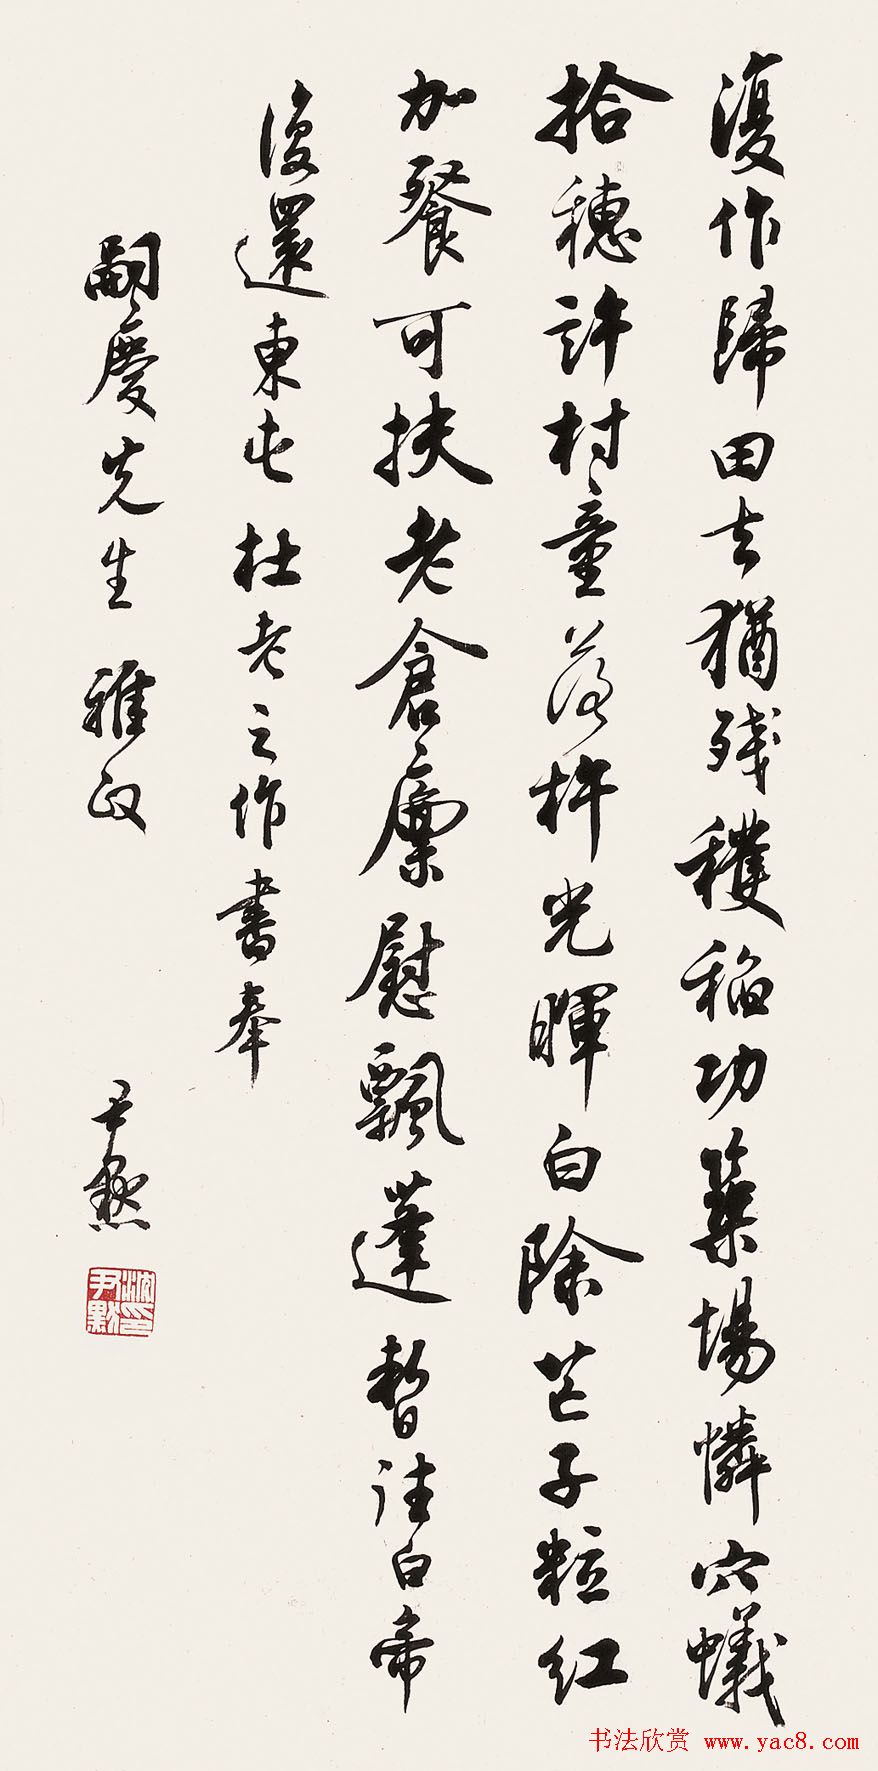 復作歸田去猶殘穫稻功築場憐穴蟻
拾穗許村童落杵光暉白除芒子粒紅
加餐可扶老倉廩慰飄蓬暫往白帝
復還東屯杜老之作書奉
嗣慶先生雅政 尹默
沈尹默印
书法欣赏 www.yac8.com